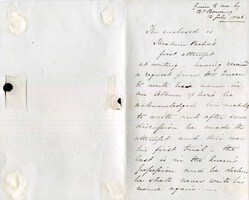 Given to me by
Dr Bowring
July 1846
The enclosed is
Ibrahim Pacha's
first attempt
at writing - having received
a request from the Queen
to write his name in
an Album of hers he
acknowledged his inability
to write and after some
discussion he made the
attempt and this was
his first trial - the
last is in the Queen's
possession and he declares
he shall never write his
name again -